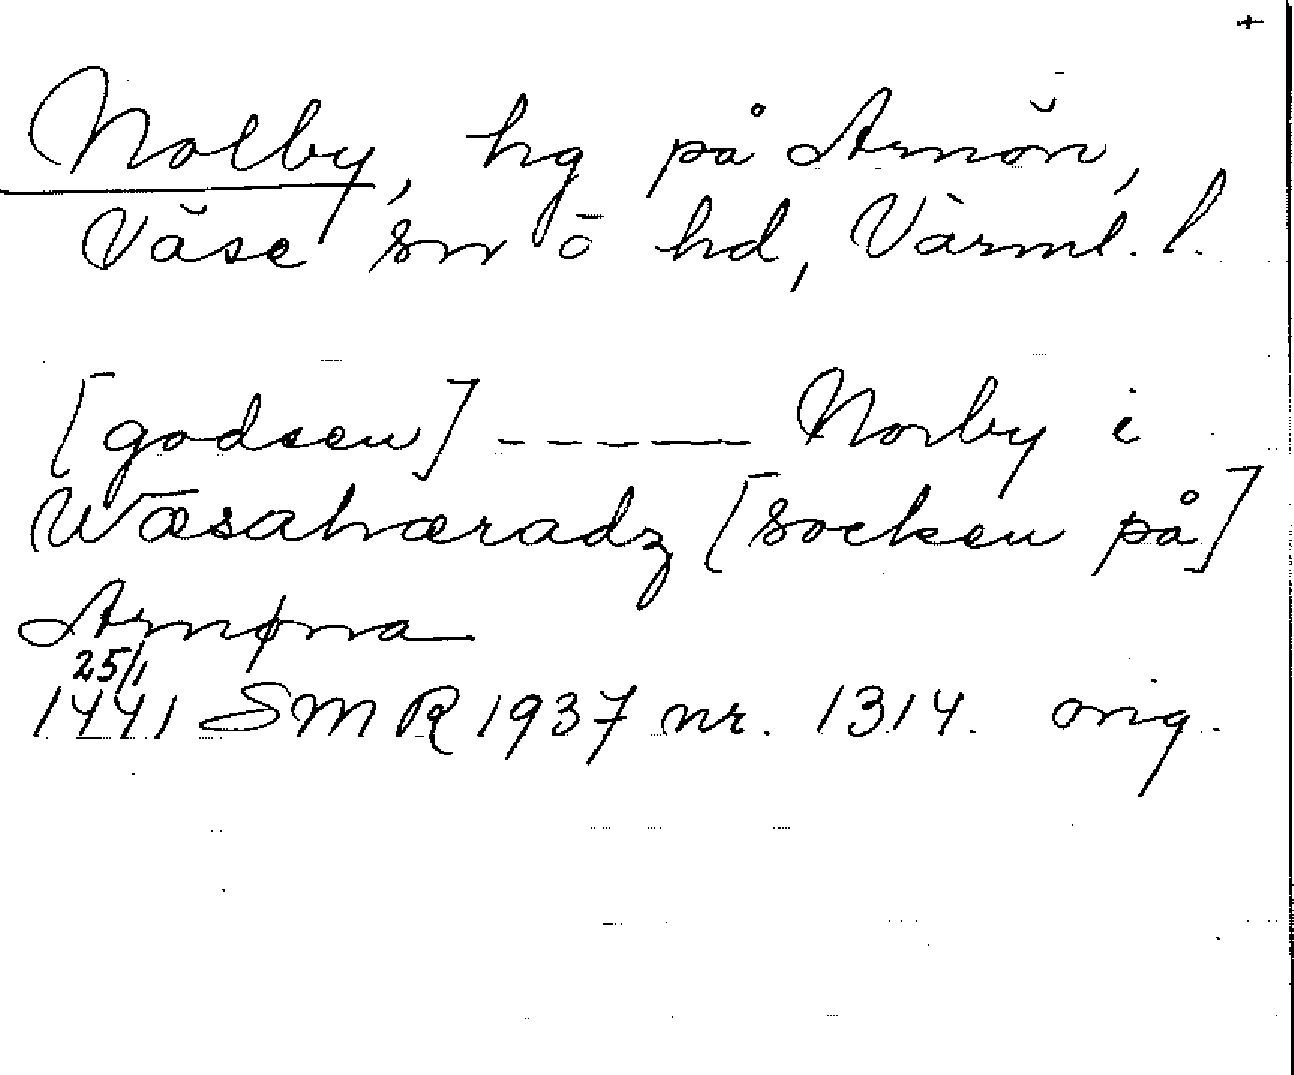 +
Nolby, hg på Arnön,
Väse sn o hd, Värml. l.
[godsen] ----- Norby i
Wæsahæradz [socken på]
Arnøna
25/1
1441 SMR 1937 nr. 1314. orig.